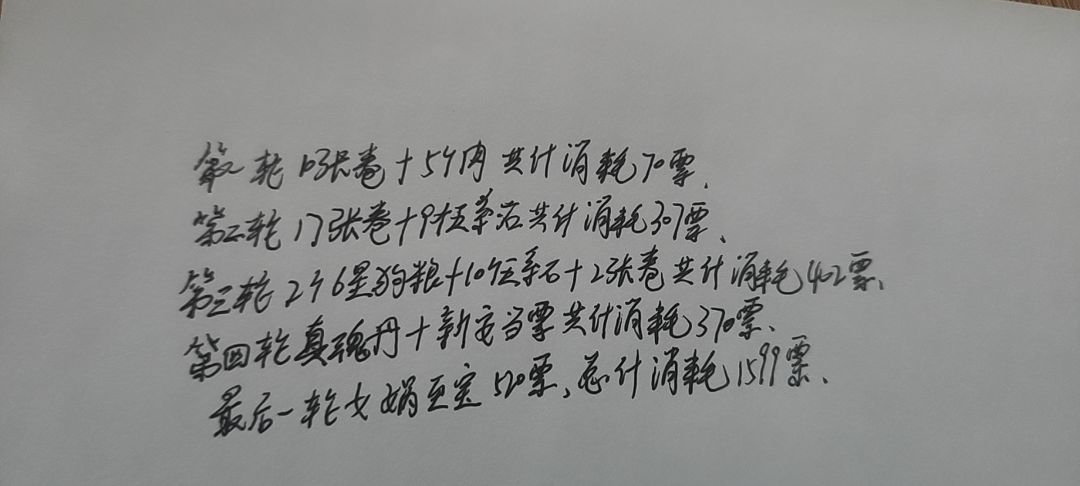 第一轮 10张卷+5个肉 共计消耗70票、
第二轮17张卷+9个五系石共计消耗307票、
第三轮2个6星狗粮+10个五系石+2张卷共计消耗402票、
第四轮真魂丹+新安当票共计消耗370票、
最后一轮女娲至宝520票,总计消耗1599票、